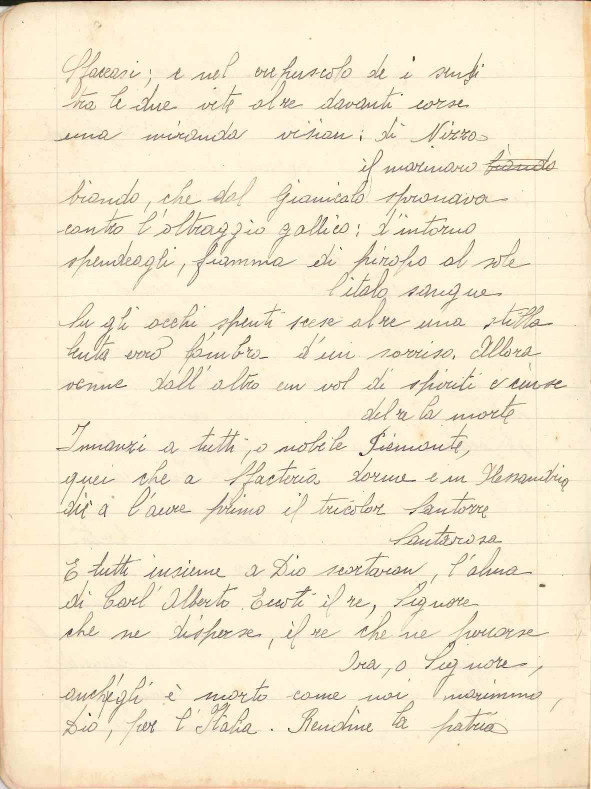 Sfaceasi; e nel crepuscolo de i sensi
tra le due vite al re davanti corse
una miranda vision: di Nizza
il marinaro biondo
biondo, che dal Gianicolo spronava
contro l'oltraggio gallico: d'intorno
splendeagli, fiamma di piropo al sole
l'italo sangue
Su gli occhi spenti scese al re una stilla
lenta errò l'ombra d'un sorriso. Allora
venne dall'alto un vol di spiriti e cinse
del re la morte
Innanzi a tutti, o nobile Piemonte,
quei che a Sfacteria dorme e in Alessandria
diè a l'aure primo il tricolor Santorre
Santarosa
E tutti insieme a Dio scortaron, l'alma
di Carl'Alberto. Eccoti il re, Signore
che ne disperse, il re che ne percosse
Ora, o Signore,
anch'egli è morto come noi morimmo,
Dio, per l'Italia. Rendine la patria